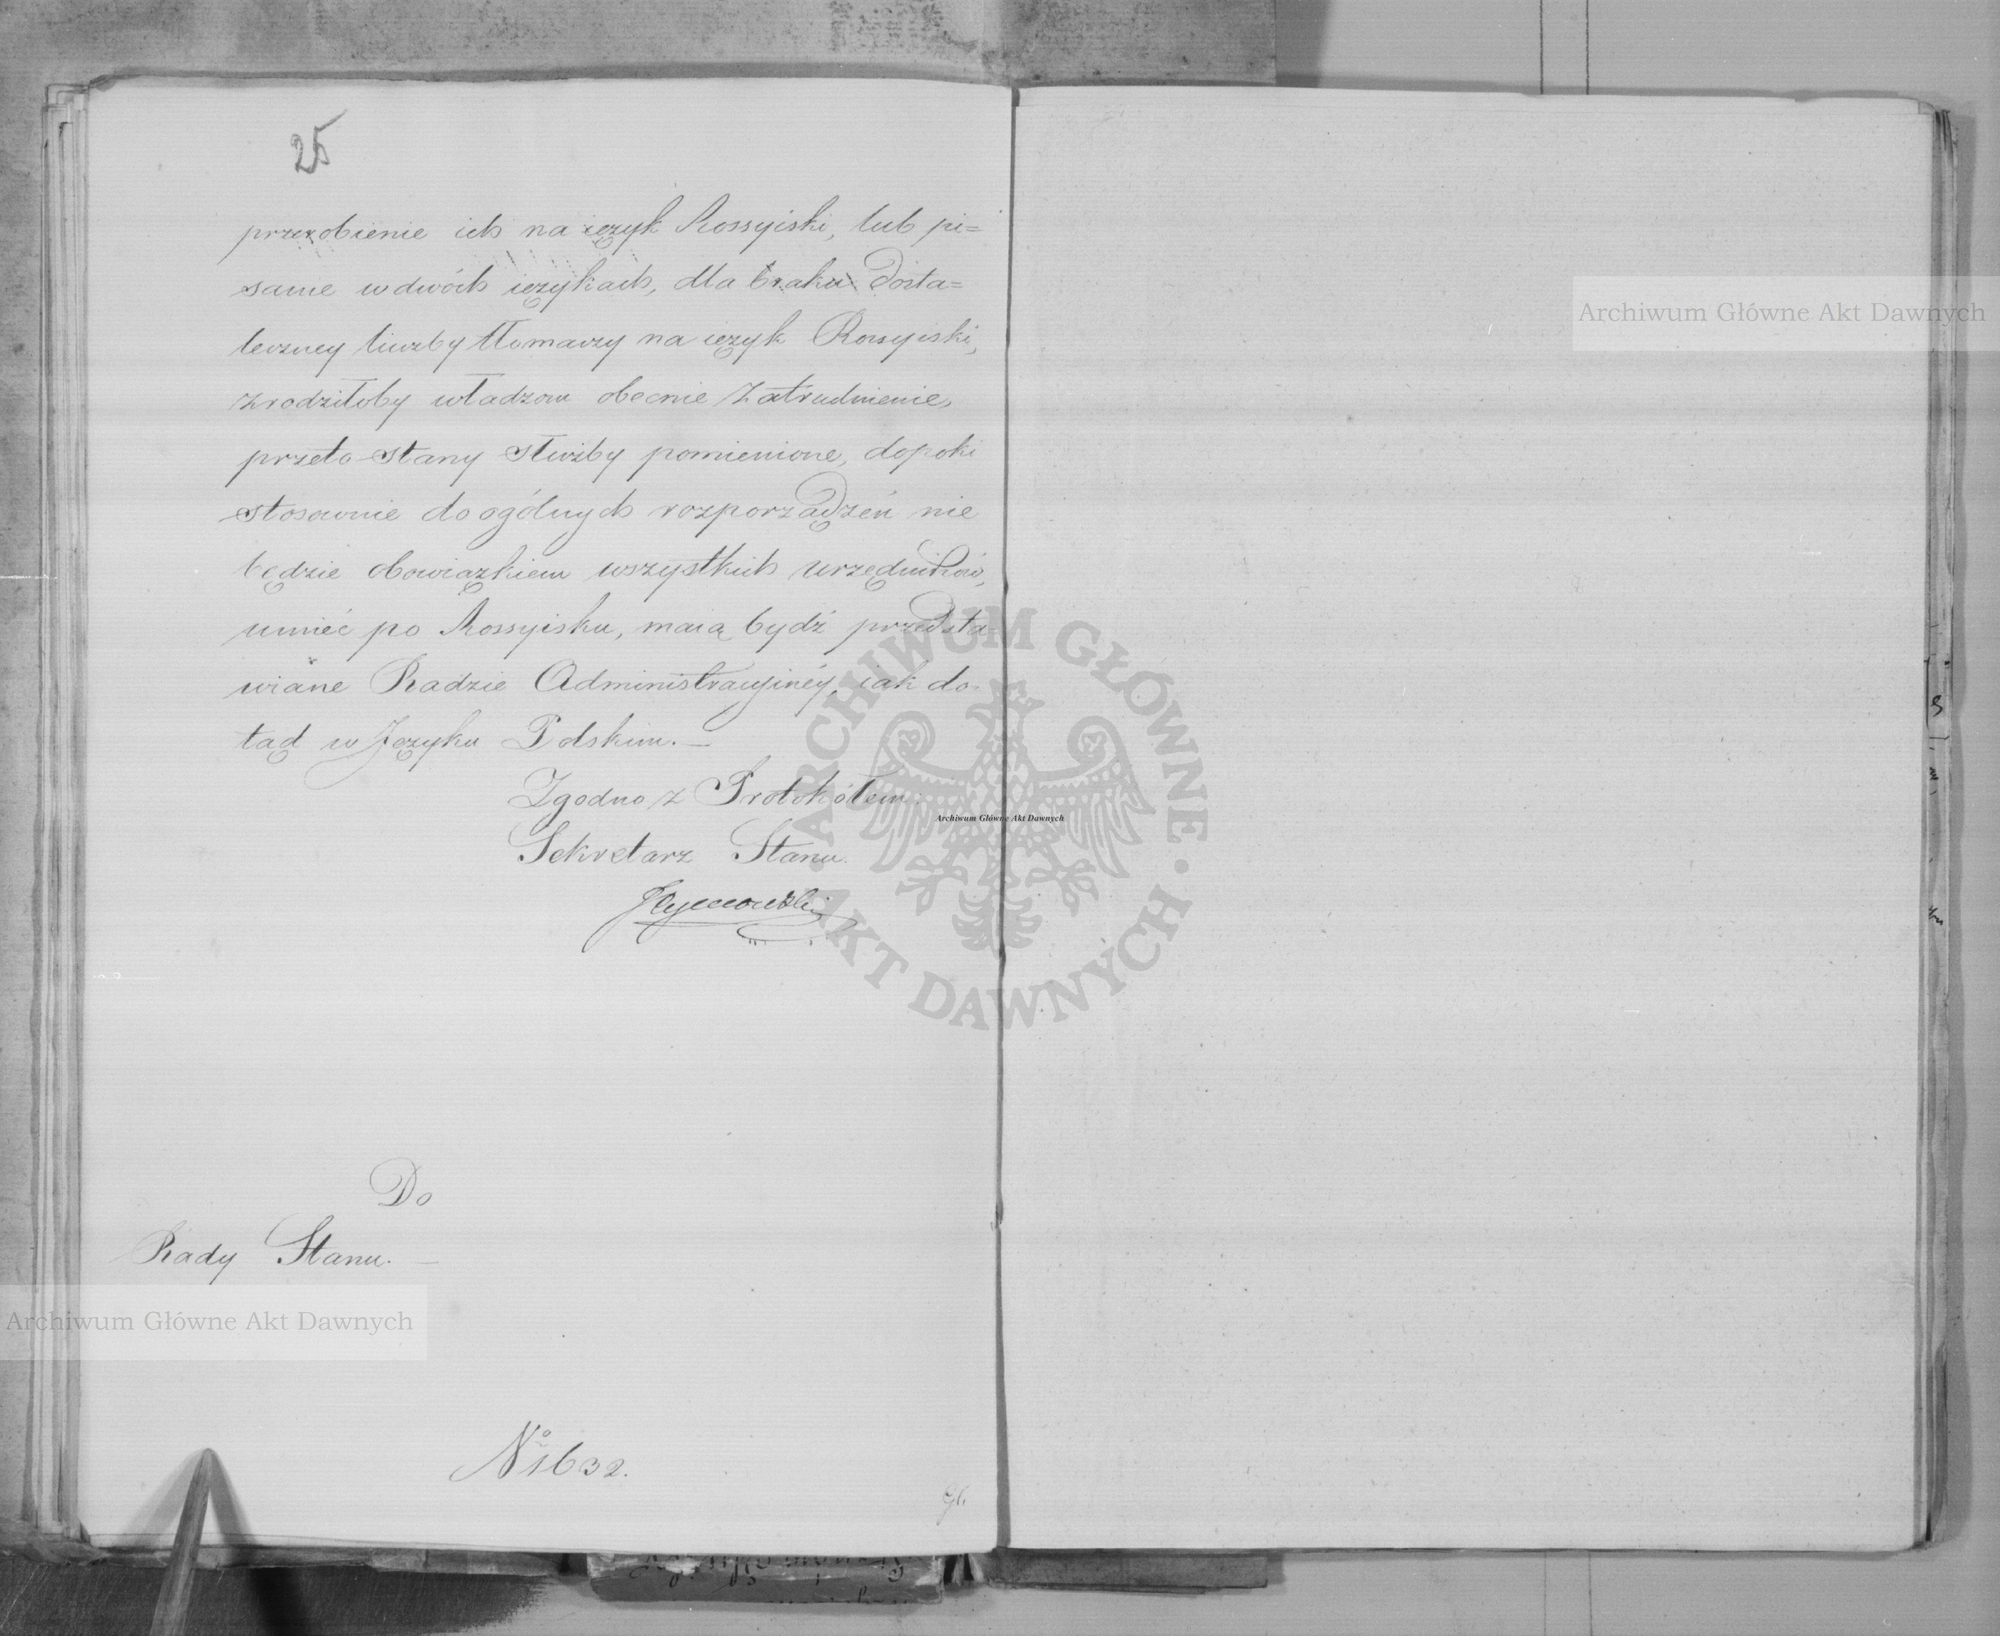 25
przerobienie ich na ięzyk Rossyiski, lub pi=
sanie w dwóch ięzykach, dla braku dosta=
teczney liczby tłomaczy na ięzyk Rossyiski,
zrodziłoby władzom obecnie zatrudnienie,
przeto stany służby pomienione, dopoki
stosownie do ogólnych rozporządzeń nie
będzie obowiązkiem wszystkich urzędników,
umieć po Rossyisku, maią bydź przedsta=
wiane Radzie Administracyjnéy, iak do=
tąd w Języku Polskim. —
Zgodno z Protokółem:
Sekretarz Stanu.
Do
Rady Stanu. —
No 1632.
Archiwum Główne Akt Dawnych
Archiwum Główne Akt Dawnych
Archiwum Główne Akt Dawnych
ARCHIWUM GŁÓWNE · AKT DAWNYCH ·